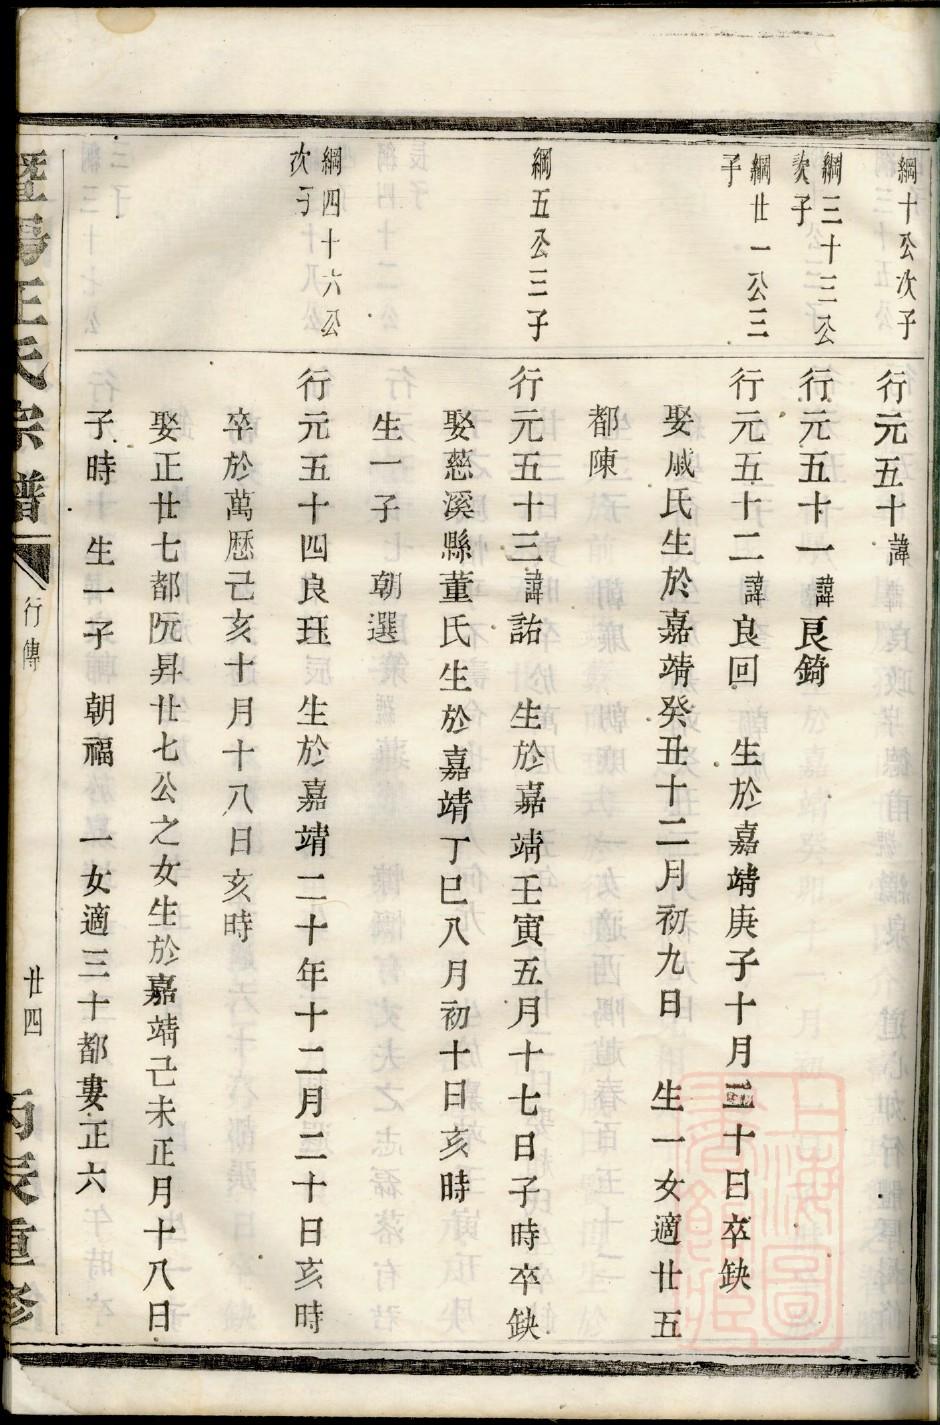 綱十公次子
行元五十諱
綱三十三公
次子
行元五十一諱良錡
綱廿一公三
子
行元五十二諱良回 生於嘉靖庚子十月三十日卒缺
娶戚氏生於嘉靖癸丑十二月初九日 生一女適廿五
都陳
綱五公三子
行元五十三諱詻 生於嘉靖壬寅五月十七日子時卒缺
娶慈溪縣董氏生於嘉靖丁巳八月初十日亥時
生一子 朝選
綱四十六公
次子
行元五十四良珏 生於嘉靖二十年十二月二十日亥時
卒於萬歷己亥十月十八日亥時
娶正廿七都阮昇廿七公之女生於嘉靖己未正月十八日
子時 生一子 朝福 一女適三十都婁正六
暨陽王氏宗譜
行傳
廿四
丙辰重修
上海圖書館藏